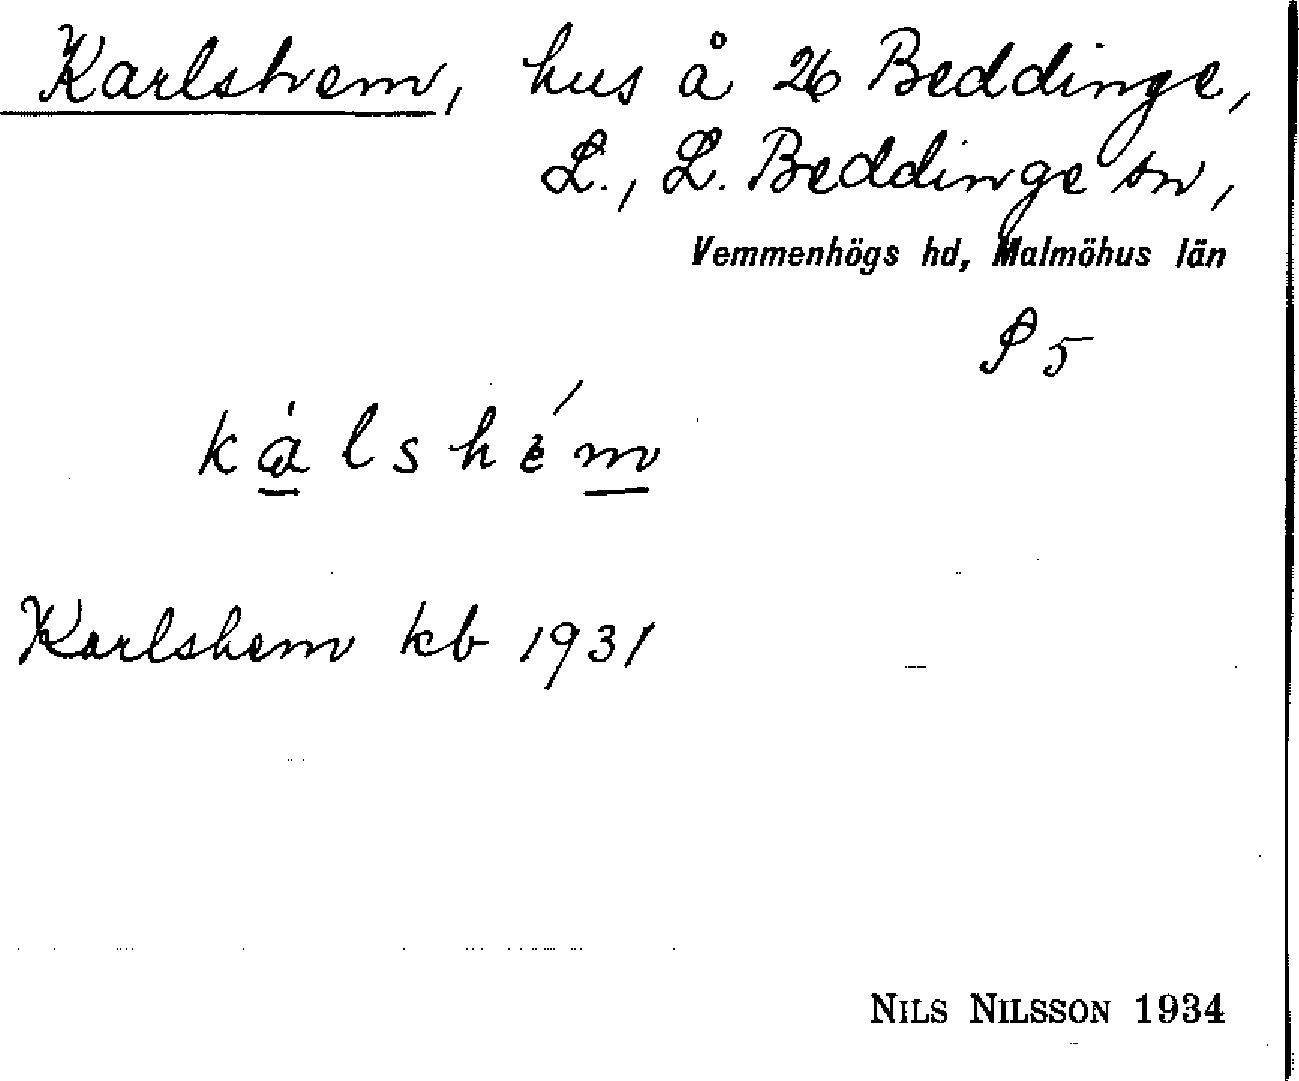 Karlshem, hus å 26 Beddinge,
L., L. Beddinge sn,
Vemmenhögs hd, Malmöhus län
S 5
kàlshém
Karlshem kb 1931
NILS NILSSON 1934